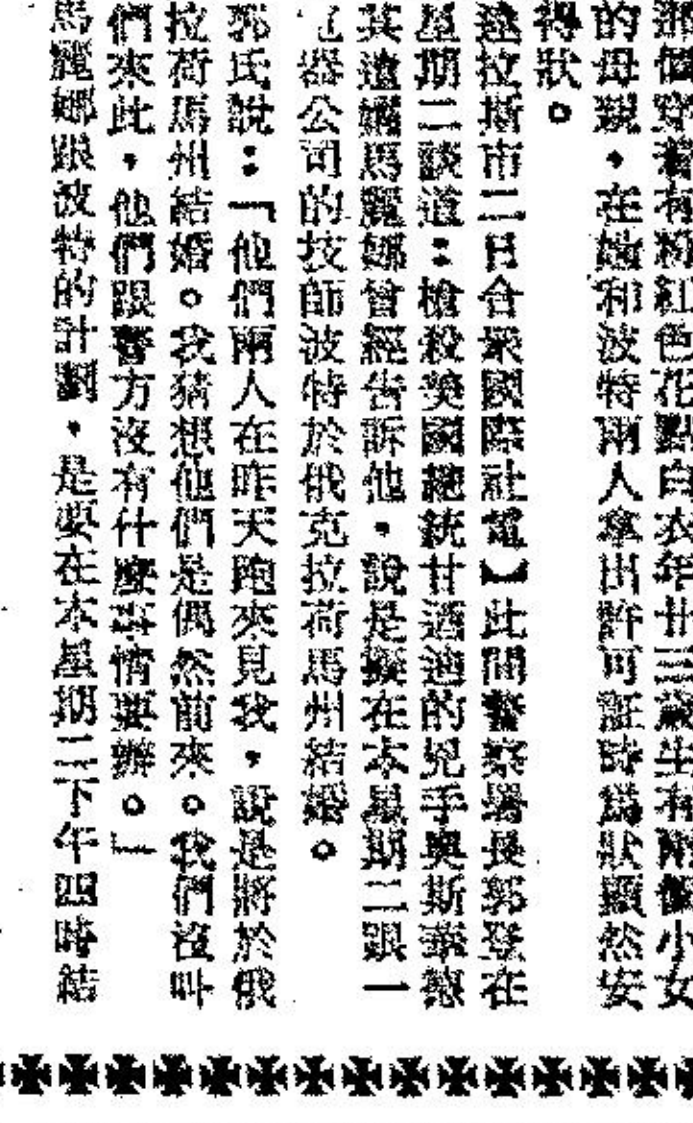 那個穿着有粉紅色花點白衣年廿三歲生有兩個小女
的母親，在她和波特兩人拿出許可証時爲狀顯然安
得狀。
達拉斯市二日合衆國際社電】此間警察署長郭登在
星期二談道：槍殺美國總統甘迺迪的兇手奧斯華德
其遺孀馬麗娜曾經告訴他，說是擬在本星期二跟一
電器公司的技師波特於俄克拉荷馬州結婚。
郭氏說：「他們兩人在昨天跑來見我，說是將於俄
拉荷馬州結婚。我猜想他們是偶然前來。我們沒叫
們來此，他們跟警方沒有什麼事情要辦。」
馬麗娜跟波特的計劃，是要在本星期二下午四時結